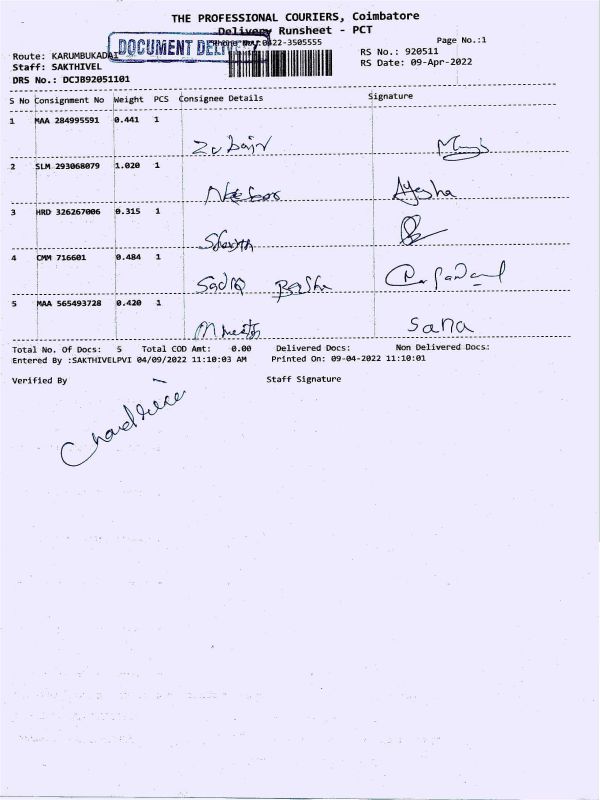 THE PROFESSIONAL COURIERS, Coimbatore
Delivery Runsheet - PCT
Phone No.:0422-3505555
Page No.:1
DOCUMENT DELIVERY
Route: KARUMBUKADAI
RS No.: 920511
Staff: SAKTHIVEL
RS Date: 09-Apr-2022
DRS No.: DCJB92051101
S No Consignment No Weight PCS Consignee Details Signature
1 MAA 284995591 0.441 1
Zubair
2 SLM 293068079 1.020 1
Ayesha
3 HRD 326267006 0.315 1
4 CMM 716601 0.484 1
Sadiq Basha
5 MAA 565493728 0.420 1
Sana
Total No. Of Docs: 5 Total COD Amt: 0.00 Delivered Docs: Non Delivered Docs:
Entered By :SAKTHIVELPVI 04/09/2022 11:10:03 AM Printed On: 09-04-2022 11:10:01
Verified By Staff Signature